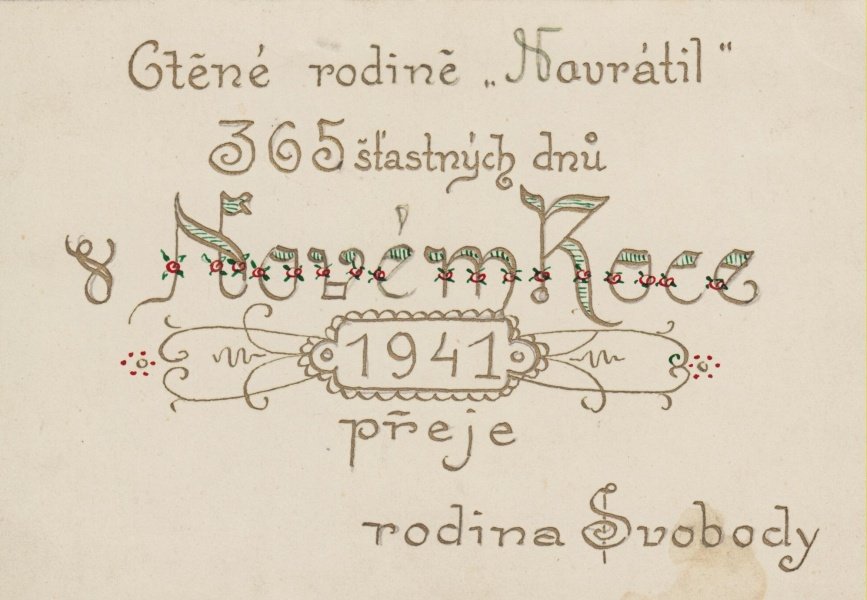 Ctěné rodině „Navrátil“
365 šťastných dnů
v Novém Roce
1941
přeje
rodina Svobody